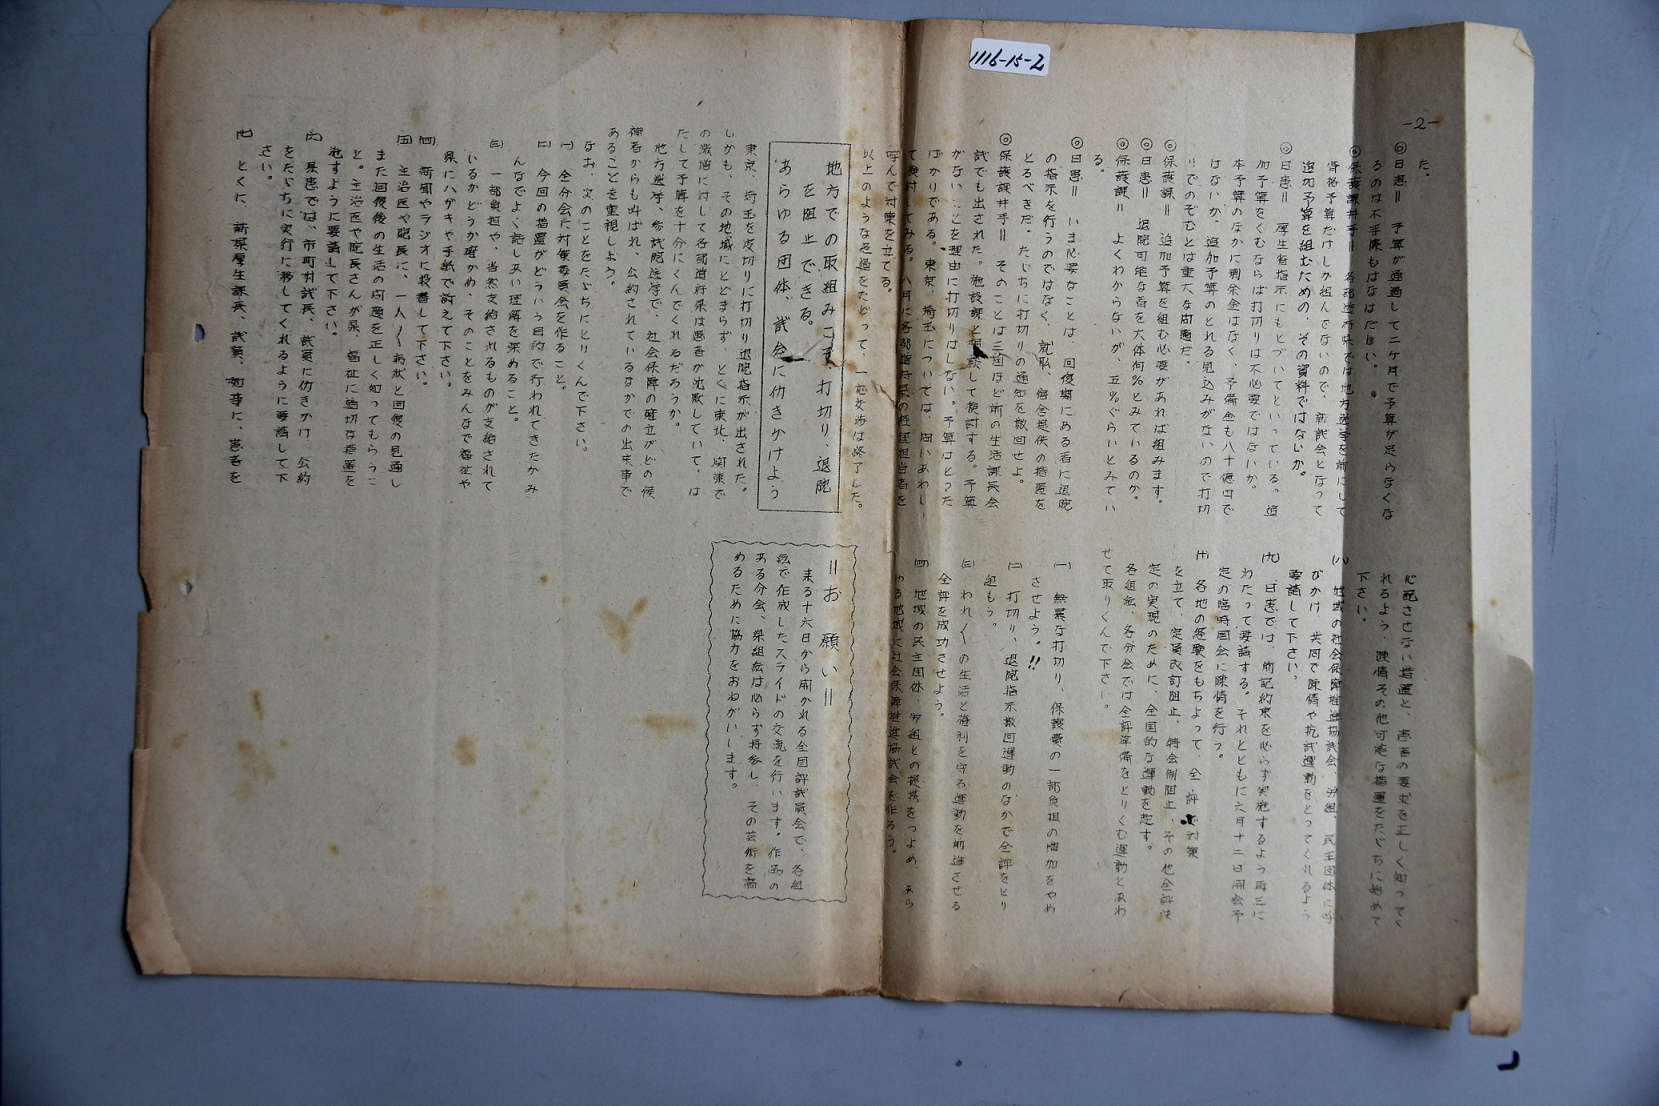 1116-15-2
-2-
た。
◎日患＝　予算が通過して二ケ月で予算が足らなくな
るのは不手際もはなはだしい。
◎保護課井手＝　各都道府県では地方選挙を前にして
骨格予算だけしか組んでないので、新議会となって
追加予算を組むための、その資料ではないか。
◎日患＝　厚生省指示にもとづいてといっている。追
加予算をくむならば打切りは不必要ではないか。
本予算のなかに剰余金はなく、予備金も八十億円で
はないか、追加予算のとれる見込みがないので打切
りでのぞむとは重大な問題だ。
◎保護課＝　追加予算を組む必要があれば組みます。
◎日患＝　退院可能な者を大体何％とみているのか。
◎保護課＝　よくわからないが、五％ぐらいとみてい
る。
◎日患＝　いま必要なことは、回復期にある者に退院
の指示を行うのではなく、就職、宿舎提供の措置を
とるべきだ。たゞちに打切りの通知を撤回せよ。
◎保護課井手＝　そのことは三日ほど前の生活課長会
議でも出された。施設課と相談して検討する。予算
がないことを理由に打切りはしない。予算はとった
ばかりである。東京、埼玉については、問いあわし
て検討してみる。八月に各都道府県の経理担当者を
呼んで対策を立てる。
以上のような経過をたどって、一応交渉は終了した。
地方での取組みこそ、打切り、退院
を阻止できる。
あらゆる団体、議会に仂きかけよう
東京、埼玉を皮切りに打切り退院指示が出された。
しかも、その地域にとどまらず、とくに東北、関東で
の厳治に対して各都道府県は患者が沈黙していて、は
たして予算を十分にくんでくれるだろうか。
地方選挙、参議院選挙で、社会保障の確立がどの候
補者からも叫ばれ、公約されているなかでの出来事で
あることを重視しよう。
なお、次のことをたゞちにとりくんで下さい。
㈠　全分会に対策委員会を作ること。
㈡　今回の措置がどういう目的で行われてきたかみ
んなでよく話しあい理解を深めること。
㈢　一部負担や、当然支給されるものが支給されて
いるかどうか確かめ、そのことをみんなで福祉や
県にハガキや手紙で訴えて下さい。
㈣　新聞やラジオに投書して下さい。
㈤　主治医や院長に、一人〱病状と回復の見通し
また回復後の生活の問題を正しく知ってもらうこ
と。主治医や院長さんが県、福祉に適切な措置を
施すように要請して下さい。
㈥　県患では、市町村議長、議員に仂きかけ、公約
をたゞちに実行に移してくれるように要請して下
さい。
㈦　とくに、新県厚生課長、議員、知事に、患者を
心配させない措置と、患者の要求を正しく知ってく
れるよう、陳情その他可能な措置をたゞちに始めて
下さい。
㈧　地域の社会保障推進協議会、労組、民主団体に呼
びかけ、共同で陳情や抗議運動をとってくれるよう
要請して下さい。
㈨　日患では、前記約束を必らず実施するよう再三に
わたって要請する。それとともに六月十二日開会予
定の臨時国会に陳情を行う。
㈩　各地の経験をもちよって、全評で対策
を立て、定員改訂阻止、特会制阻止、その他全評決
定の実現のために、全国的な運動を起す。
各組会、各分会では全評準備をとりくむ運動とあわ
せて取りくんで下さい。
㈠　無暴な打切り、保護費の一部負担の増加をやめ
させよう。!!
㈡　打切り、退院指示撤回運動のなかで全評をとり
組もう。
㈢　われ〱の生活と権利を守る運動を前進させる
全評を成功させよう。
㈣　地域の民主団体、労組との提携をつよめ、あら
ゆる地域に社会保障推進協議会を作ろう。
＝お　願　い＝
来る十六日から開かれる全国評議員会で、各組
会で作成したスライドの交流を行います。作品の
ある分会、県組会は必らず持参し、その芸術を高
めるために協力をおねがいします。